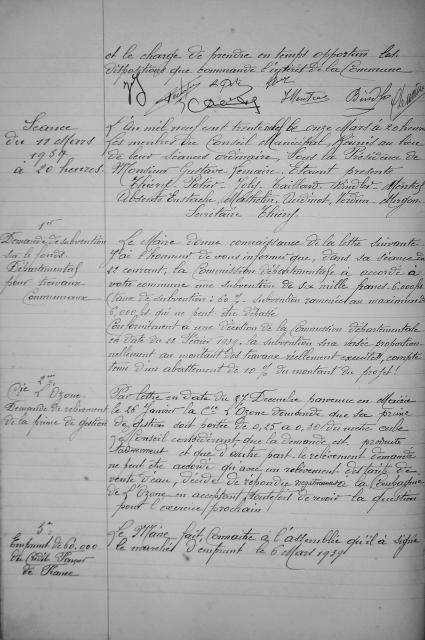 et le charge de prendre en temps opportun les
dispositions que commande l'intérêt de la Commune
Séance
du 11 Mars
à 20 heures
L'An mil neuf cent trente le onze Mars à 20 heures
les membres du Conseil Municipal, réunis au lieu
de leur séances ordinaire, sous la Présidence de
Monsieur Gustave Lemaire, Etaient présents
Thiéry Potier Joly Taillard
Absents Eustache
Secrétaire Thiéry
1er
Demande de subvention
sur le fonds
Départemental
pour travaux
Communaux
Le Maire donne connaissance de la lettre suivante
J'ai l'honneur de vous informer que, dans sa séance du
22 courant, la Commission départementale a accordé à
votre commune une subvention de six mille francs 6.000 frs
Taux de subvention : 60 % subvention ramenée au maximum de
6,000 frs qui ne peut être dépassé
Conformément à une décision de la Commission départementale
en date du 22 Février 1939, la subvention sera versée proportion-
nellement au montant des travaux réellement exécutés, compte
tenu d'un abattement de 10 % du montant du projet
2me
Cie L'Ozone
Demande de relèvement
de la prime de gestion
Par lettre en date du 27 Décembre parvenue en Mairie
le 26 Janvier la Cie L'Ozone demande que sa prime
de gestion soit portée de 0,25 à 0,50 du mètre cube
Le Conseil considérant que la demande est
tardivement et que d'autre part le relèvement demandé
ne peut être accordé qu'avec un relèvement des tarifs de
vente d'eau, décide de répondre à la Compagnie
de l'Ozone en acceptant toutefois de revoir la question
pour l'exercice prochain
Emprunt de 60.000
du Crédit Foncier
de France
Le Maire fait connaître à l'assemblée qu'il a signé
le marché d'emprunt le 6 Mars 1939